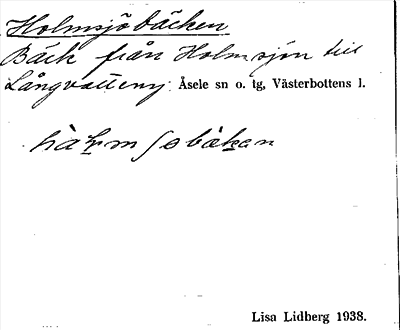 Holmsjöbäcken
Bäck från Holmsjön till
Långvattenj Åsele sn o. tg, Västerbottens l.
Lisa Lidberg 1938.